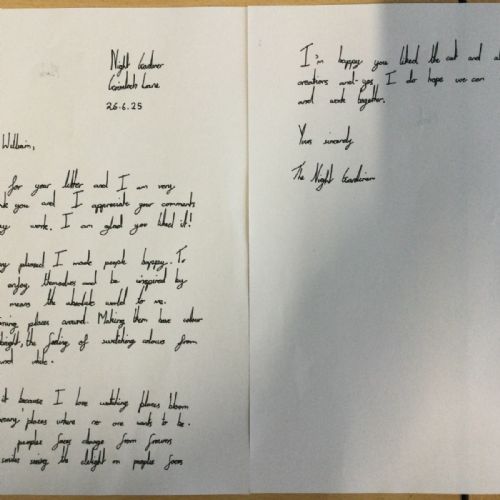 Night Gardner
Grimloch Lane
26.6.25
William,
for your letter and I am very
you and I appreciate your comments
work. I am glad you liked it!
pleased I made people happy. To
enjoy themselves and be inspired by
means the absolute world to me.
places around. Making them have colour
bright, the feeling of switching colours from
and white.
it because I love watching places bloom
places where no one wants to be.
peoples faces change from frowns
smiles seeing the delight on peoples faces
I'm happy you liked the cat and
creations and yes I do hope we can
and work together.
Yours sincerely
The Night Gardener